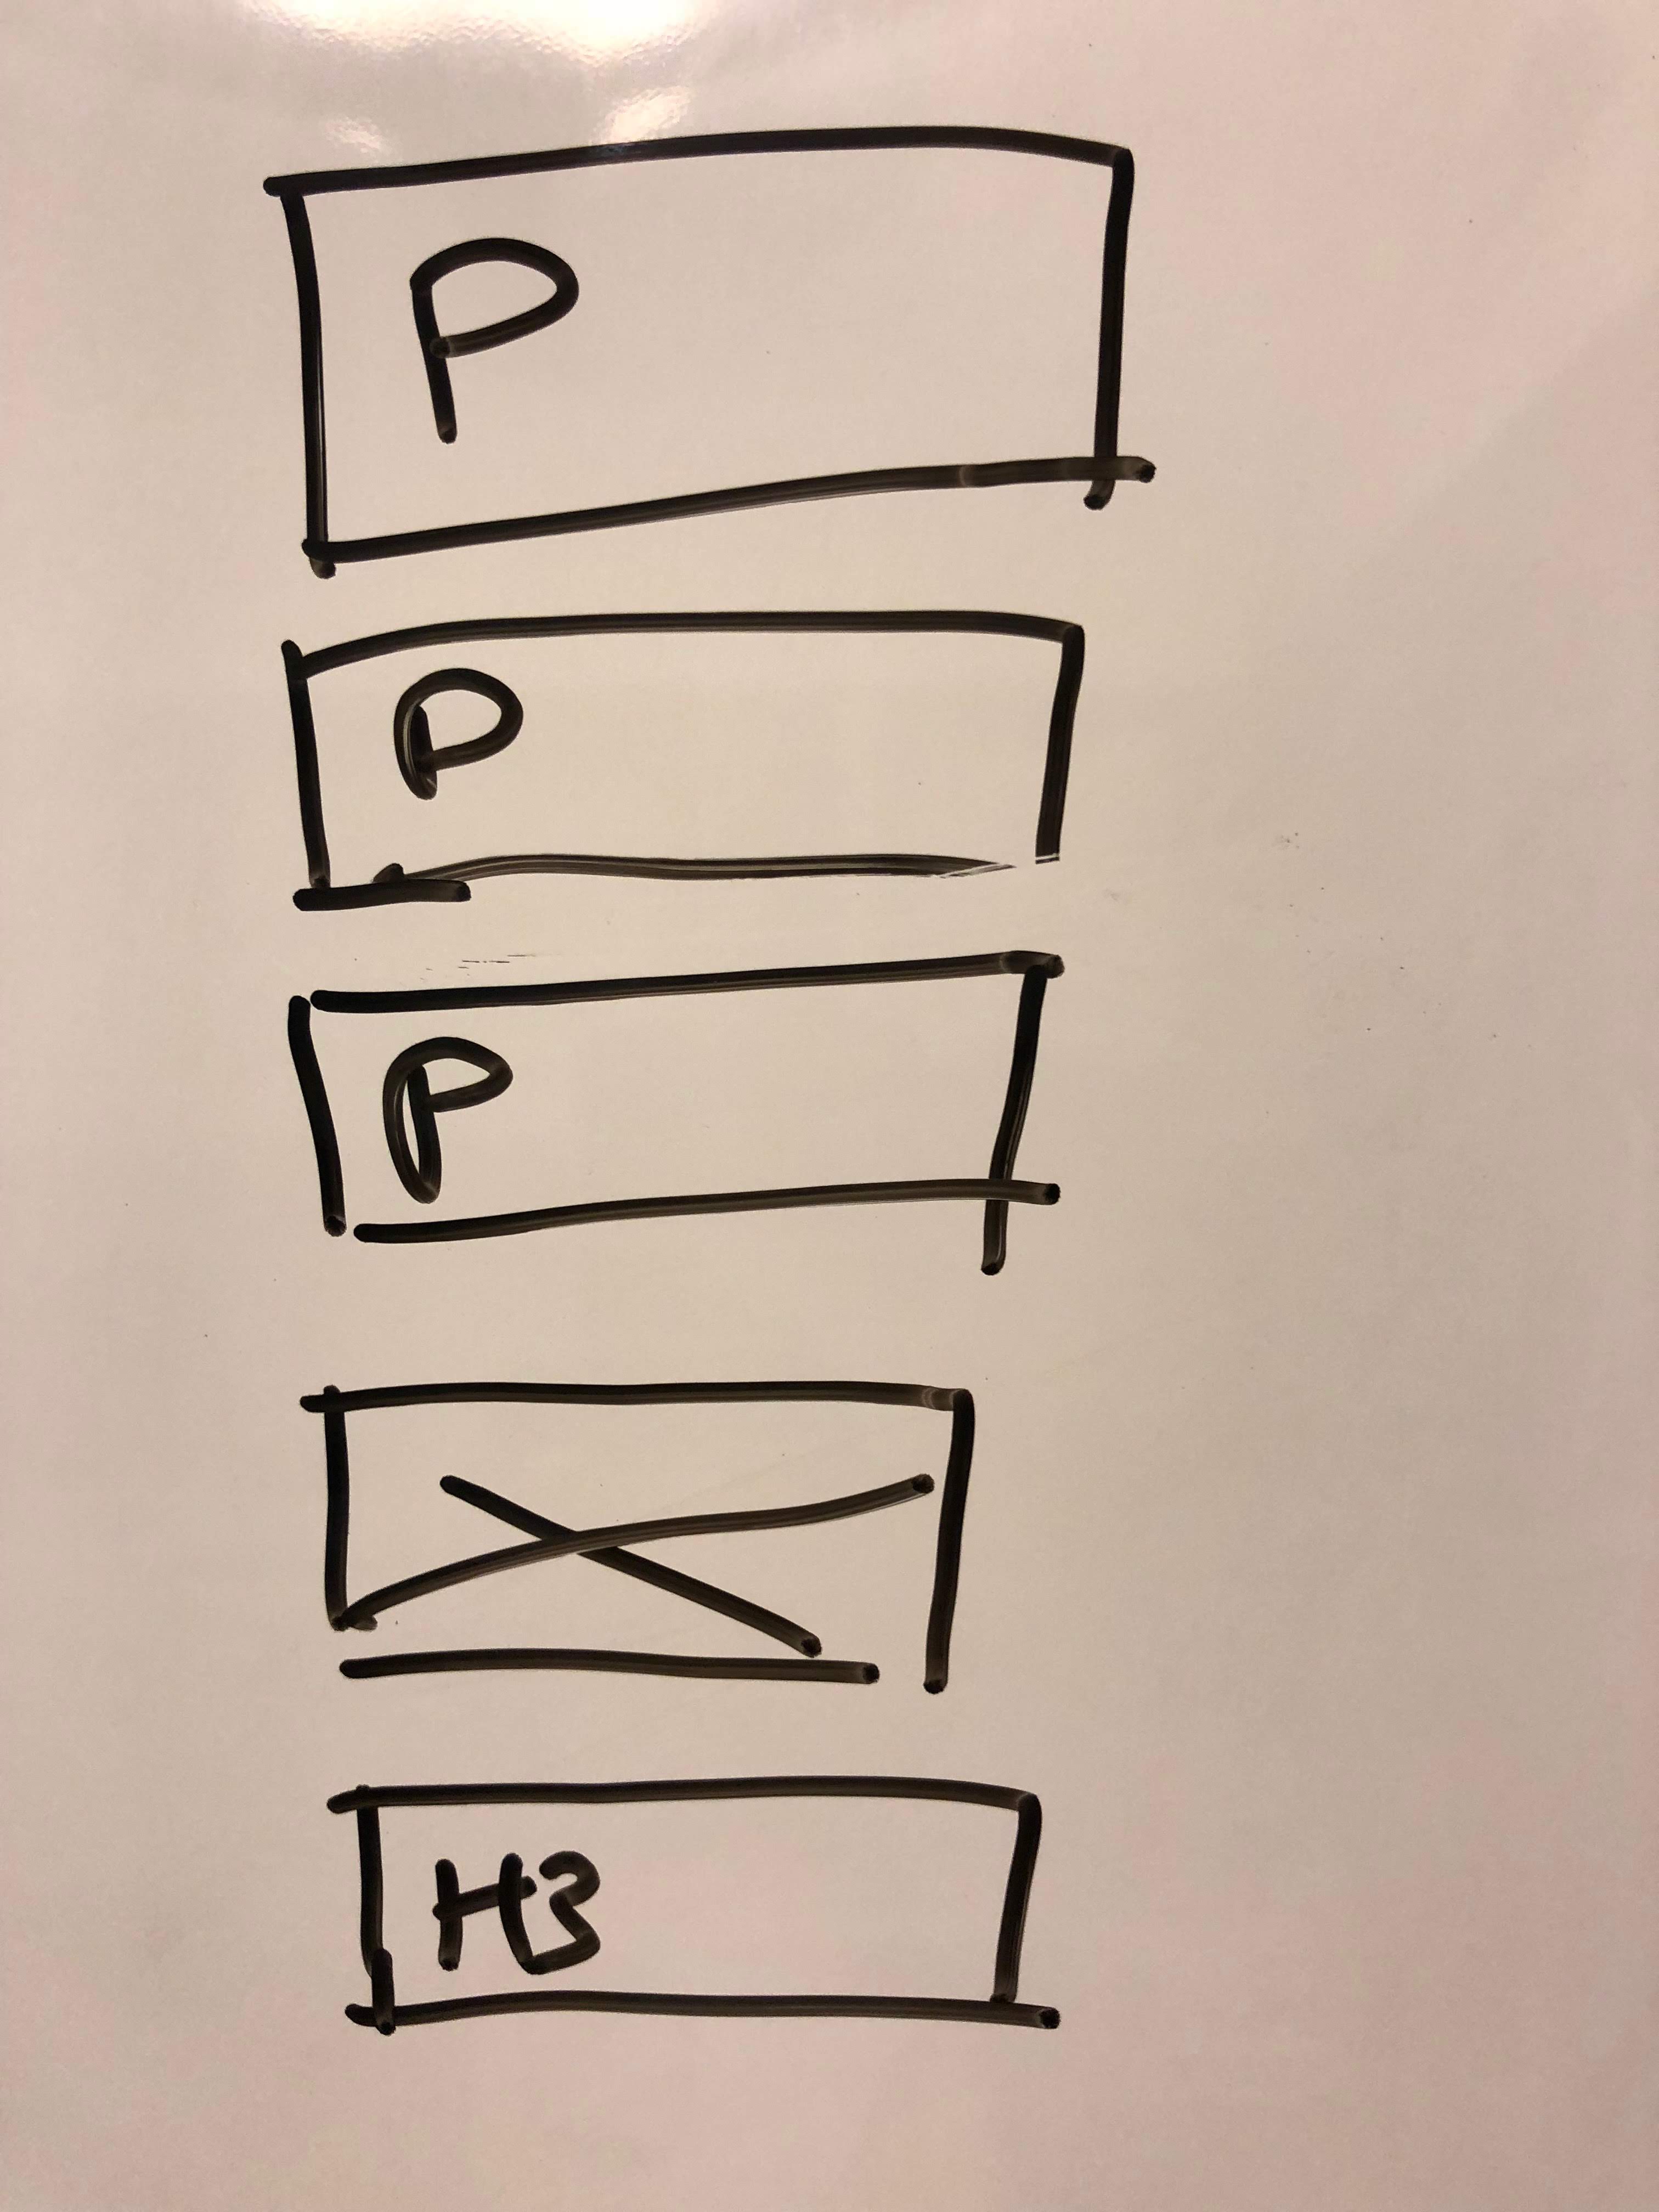 P
P
P
H3